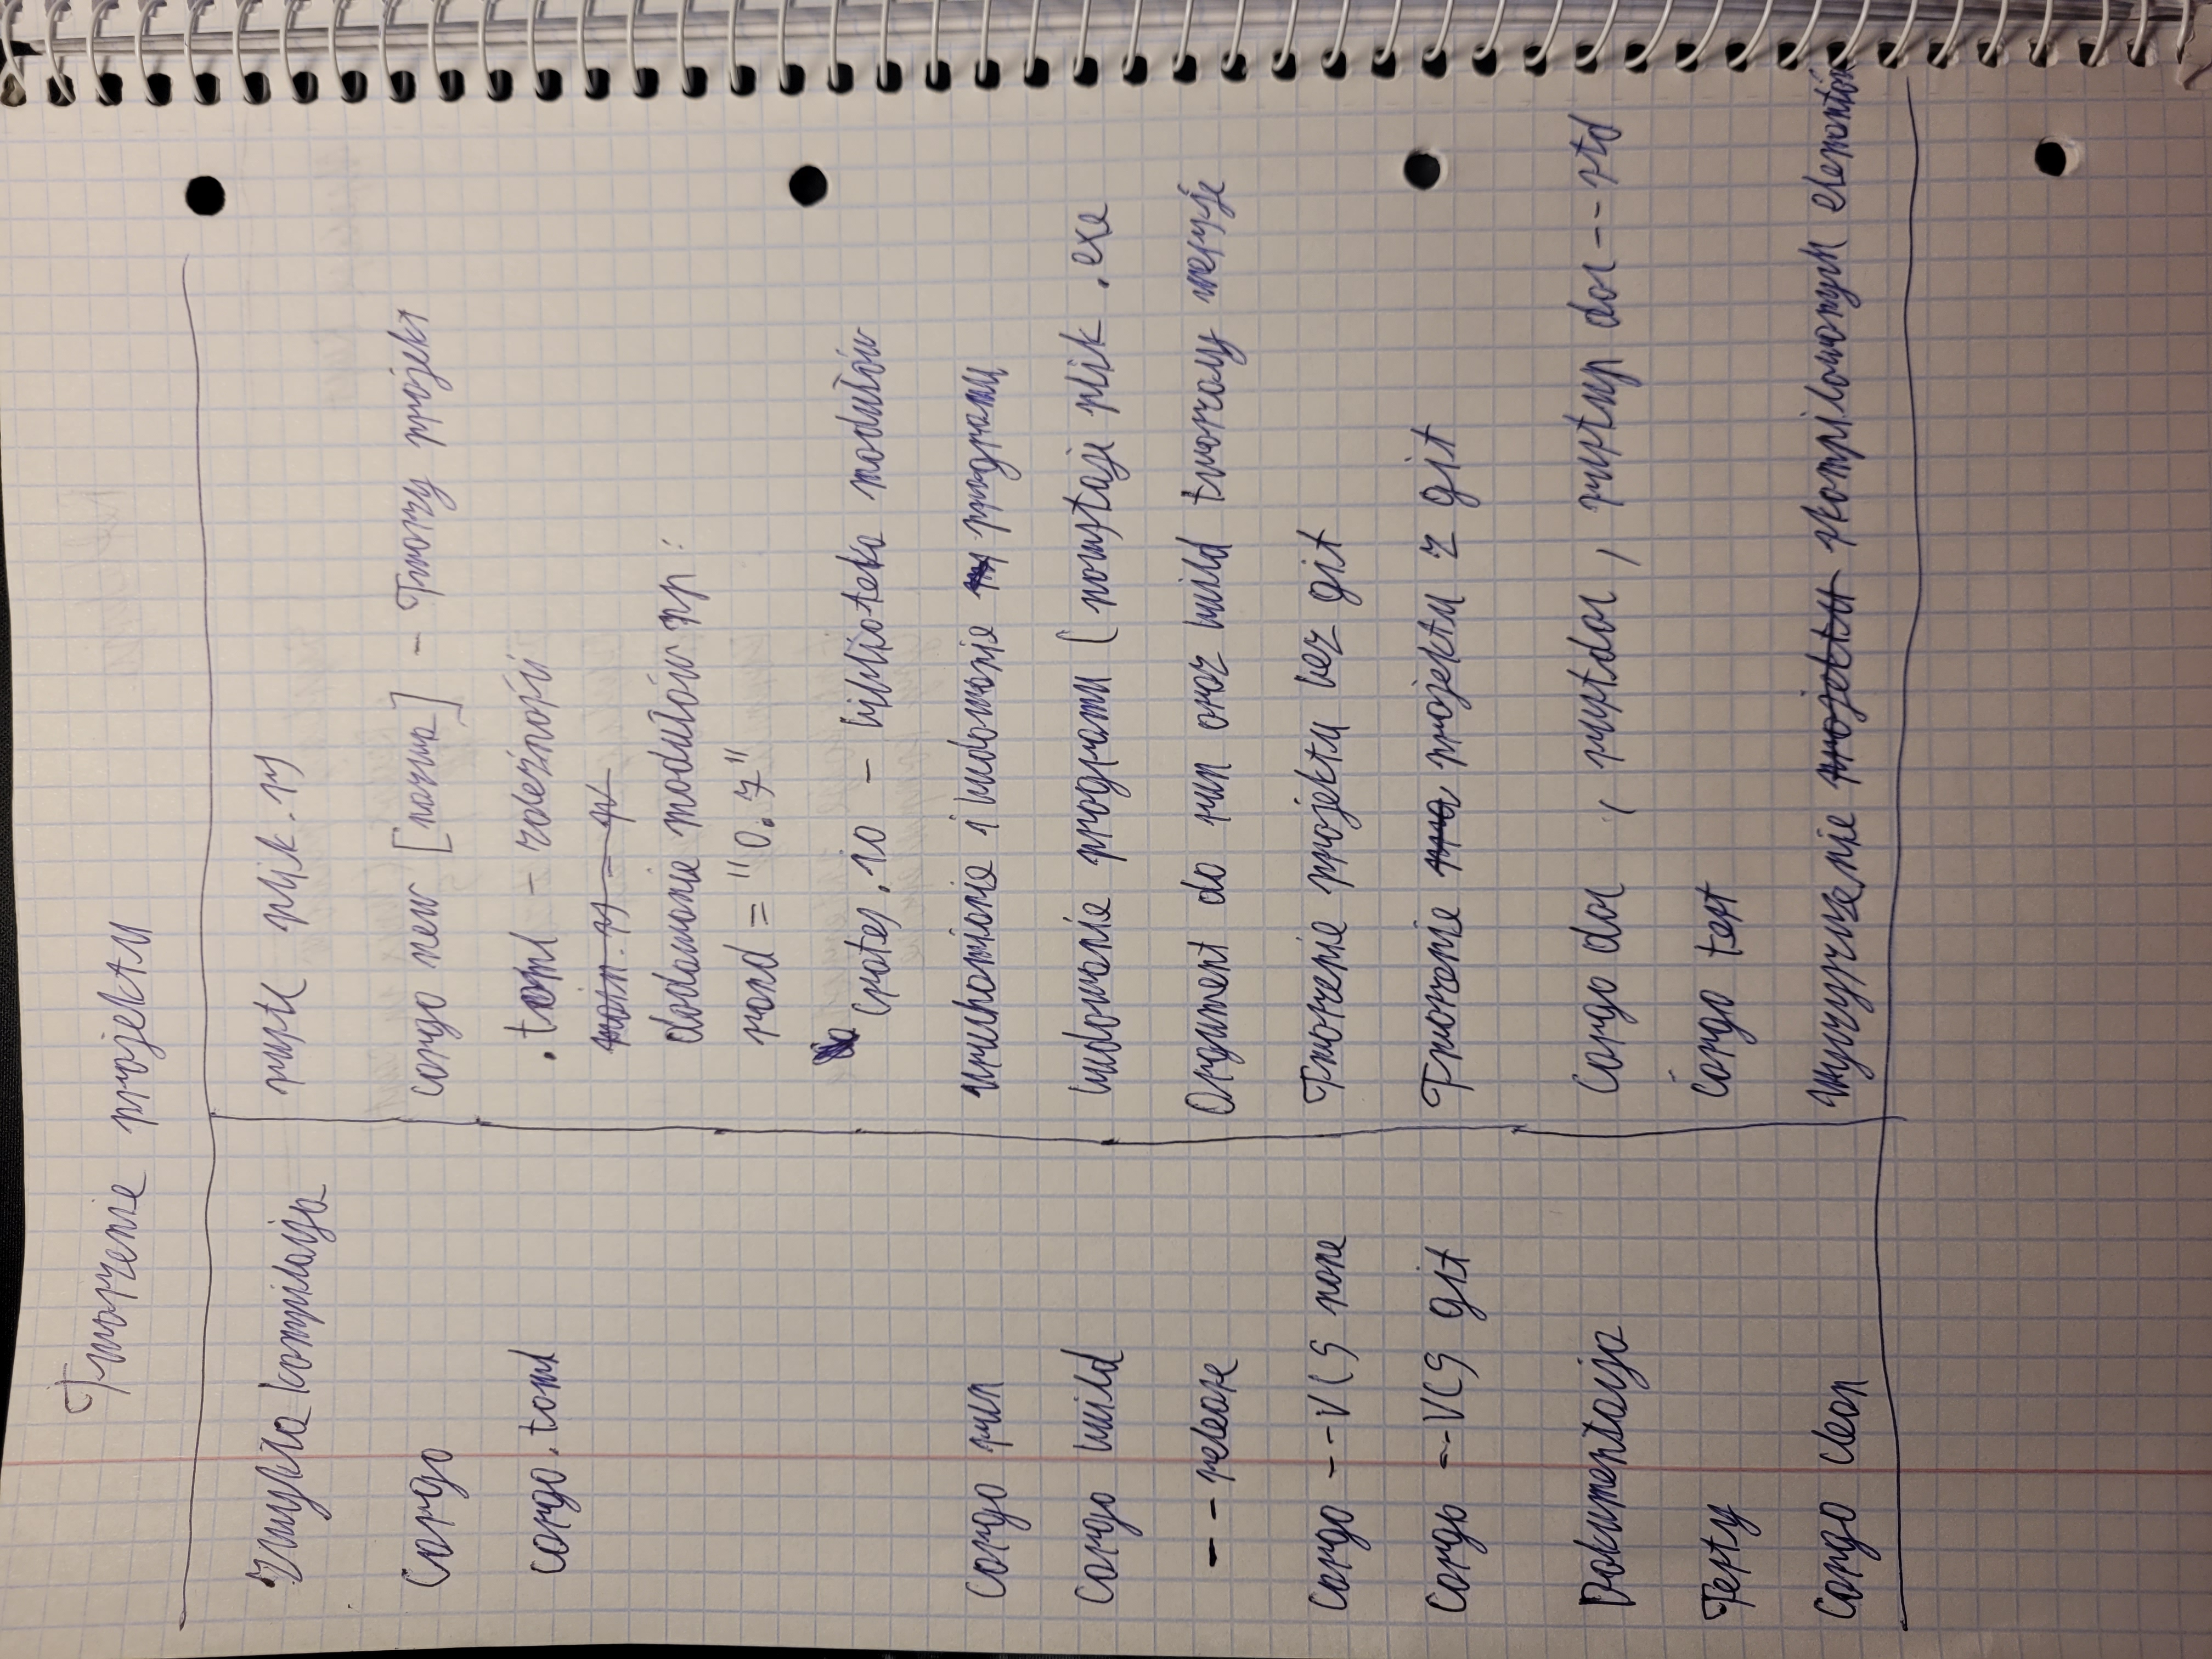 Tworzenie projektu
Zwykła kompilacja rustc plik.rs
Cargo cargo new [nazwa] - Tworzy projekt
cargo.toml .toml - zależności
main.rs - p
dodawanie modułów np:
rand = "0.7"
Crates.io - biblioteka modułów
Cargo run uruchomianie i budowanie programu
Cargo build budowanie programu ( powstaje plik .exe
--release Argument do run oraz build tworzący wersje
Cargo --VCS none Tworzenie projektu bez git
Cargo --VCS git Tworzenie projektu z git
Dokumentacja Cargo doc , rustdoc , rustup doc --std
Testy Cargo test
Cargo clean Wyczyszczenie projektu skompilowanych elementów